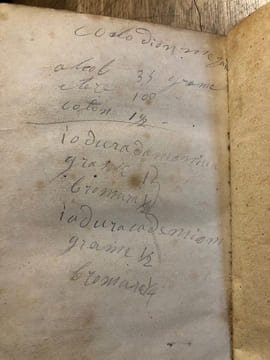 colodion
alcol 35 grame
etere 105
coton 1½
iodura damonium
grame 1½
bromura ½
iodura cademiom
grame ½
bromura ¼